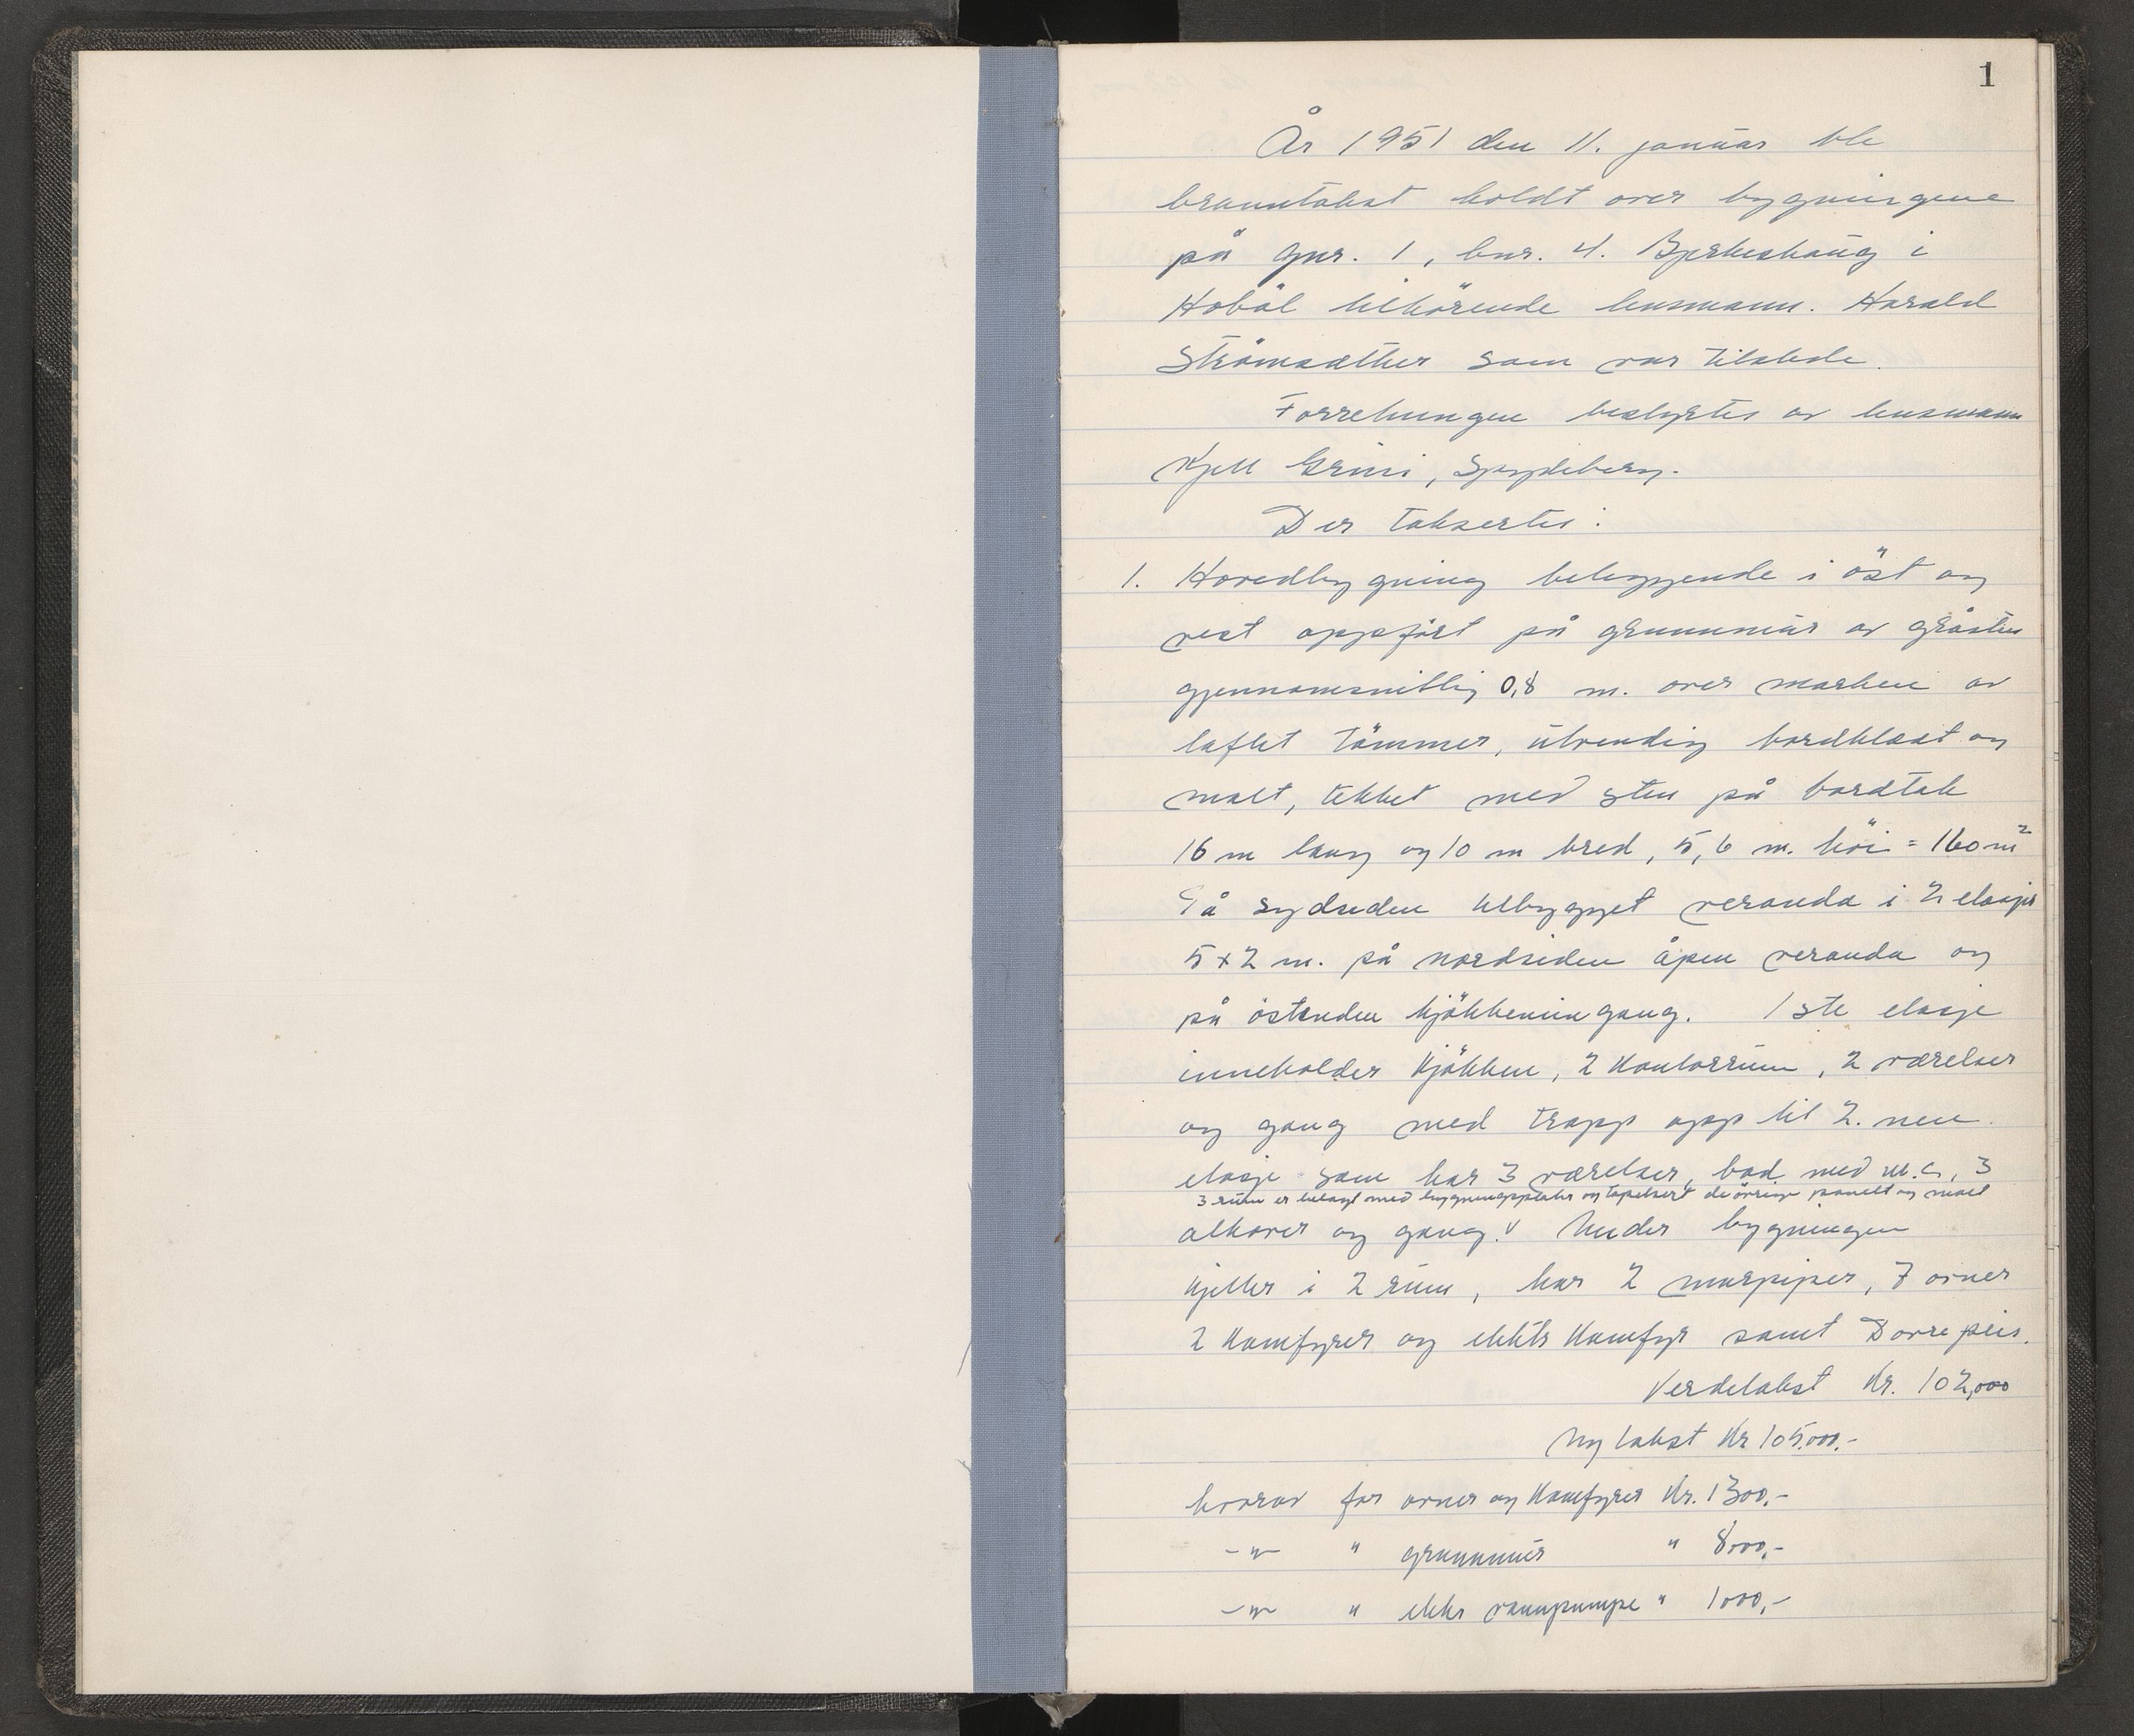 1
År 1951 den 11. januar ble
branntakst holdt over bygningene
på gnr. 1, bnr. 4. Bjerkeshaug i
Hobøl tilhörende lensmann. Harald
Strømsæther som var tilstede.
Forretningen bestyrtes av lensmann
Kjell Grini, Spydeberg.
Der taksertes:
1. Hovedbygning beliggende i öst og
vest oppfört på grunnmur av gråsten
gjennomsnittlig 0,8 m. over marken av
laftet tömmer, utvendig bordkledt og
malt, tekket med sten på bordtak
16 m lang og 10 m bred, 5,6 m. höi = 160 m²
På sydsiden utbygget veranda i 2 etasjer
5 x 2 m. på nordsiden åpen veranda og
på östenden kjökkeninngang. 1ste etasje
inneholder kjökken, 2 kontorrum, 2 værelser
og gang med trapp opp til 2. nen
etasje som har 3 værelser, bad med w.c., 3
3 rum er belagt med bygningsplater og tapetsert de övrige panelt og malt
alkover og gang. V Under bygningen
kjeller i 2 rum, har 2 murpiper, 7 ovner
2 komfyrer og elektr komfyr samt Dovre peis.
Verdetakst kr. 102,000
Ny takst kr 105.000.-
hvorav for ovner og komfyrer kr. 1300,-
-"- " grunnmur " 8000,-
-"- " elektr vannpumpe " 1000,-